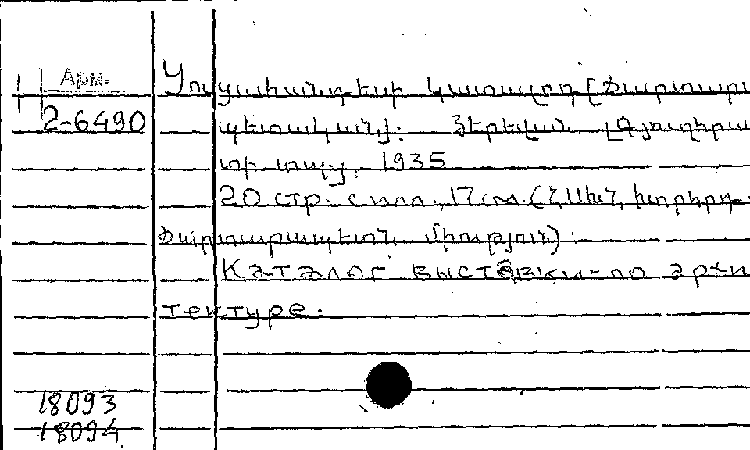 Арм.
2-6490
Ցուցահանդեսի կատալոգ [Ճարտարա
պետական]: Երեվան
տիպ., 1935
20 стр. с илл., 17 см. (ՀՍԽՀ խորհրդ.
ճարտարապետն. միություն)
Каталог выставки по архи
тектуре.
18093
18094